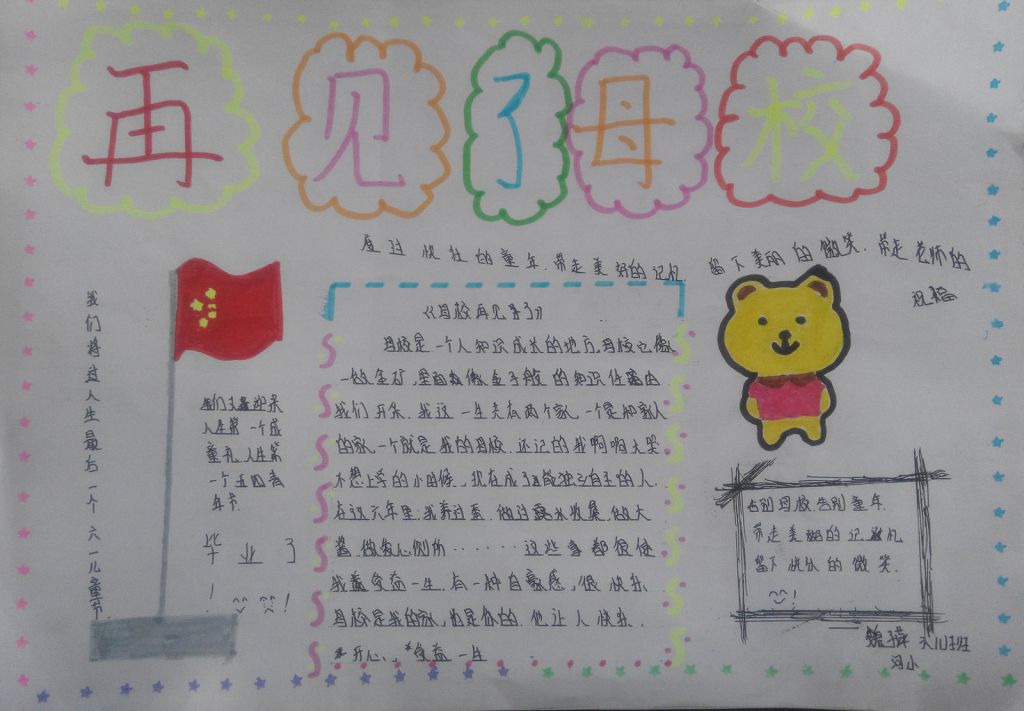 再见了母校
度过快壮的童年.带走美好的记忆
留下美丽的微笑.带走老师的
祝福
我们将过人生最后一个六一儿童节
我们又要迎来
人生第一个成
童礼.人生第
一个五四青
年节.
毕业了
!
!
《母校再见了》
母校是一个人知识成长的地方.母校它像
一做金矿,里面数像金子般的知识任由
我们开采.我这一生共有两个家.一个是和家人
的家.一个就是我的母校.还记的我啊啊大哭
不想上学的小时候,现在成了能独立自主的人.
在这六年里.我养过蚕.做过露水收集.做大
酱.做爱心厕所······这些事都促使
我受益一生.有一种自豪感,很快乐.
母校是我的家,也是你的.他让人快乐.
开心、受益一生
告别母校.告别童年.
带走美丽的记忆
留下快乐的微笑.
!
六(1)班
冯小